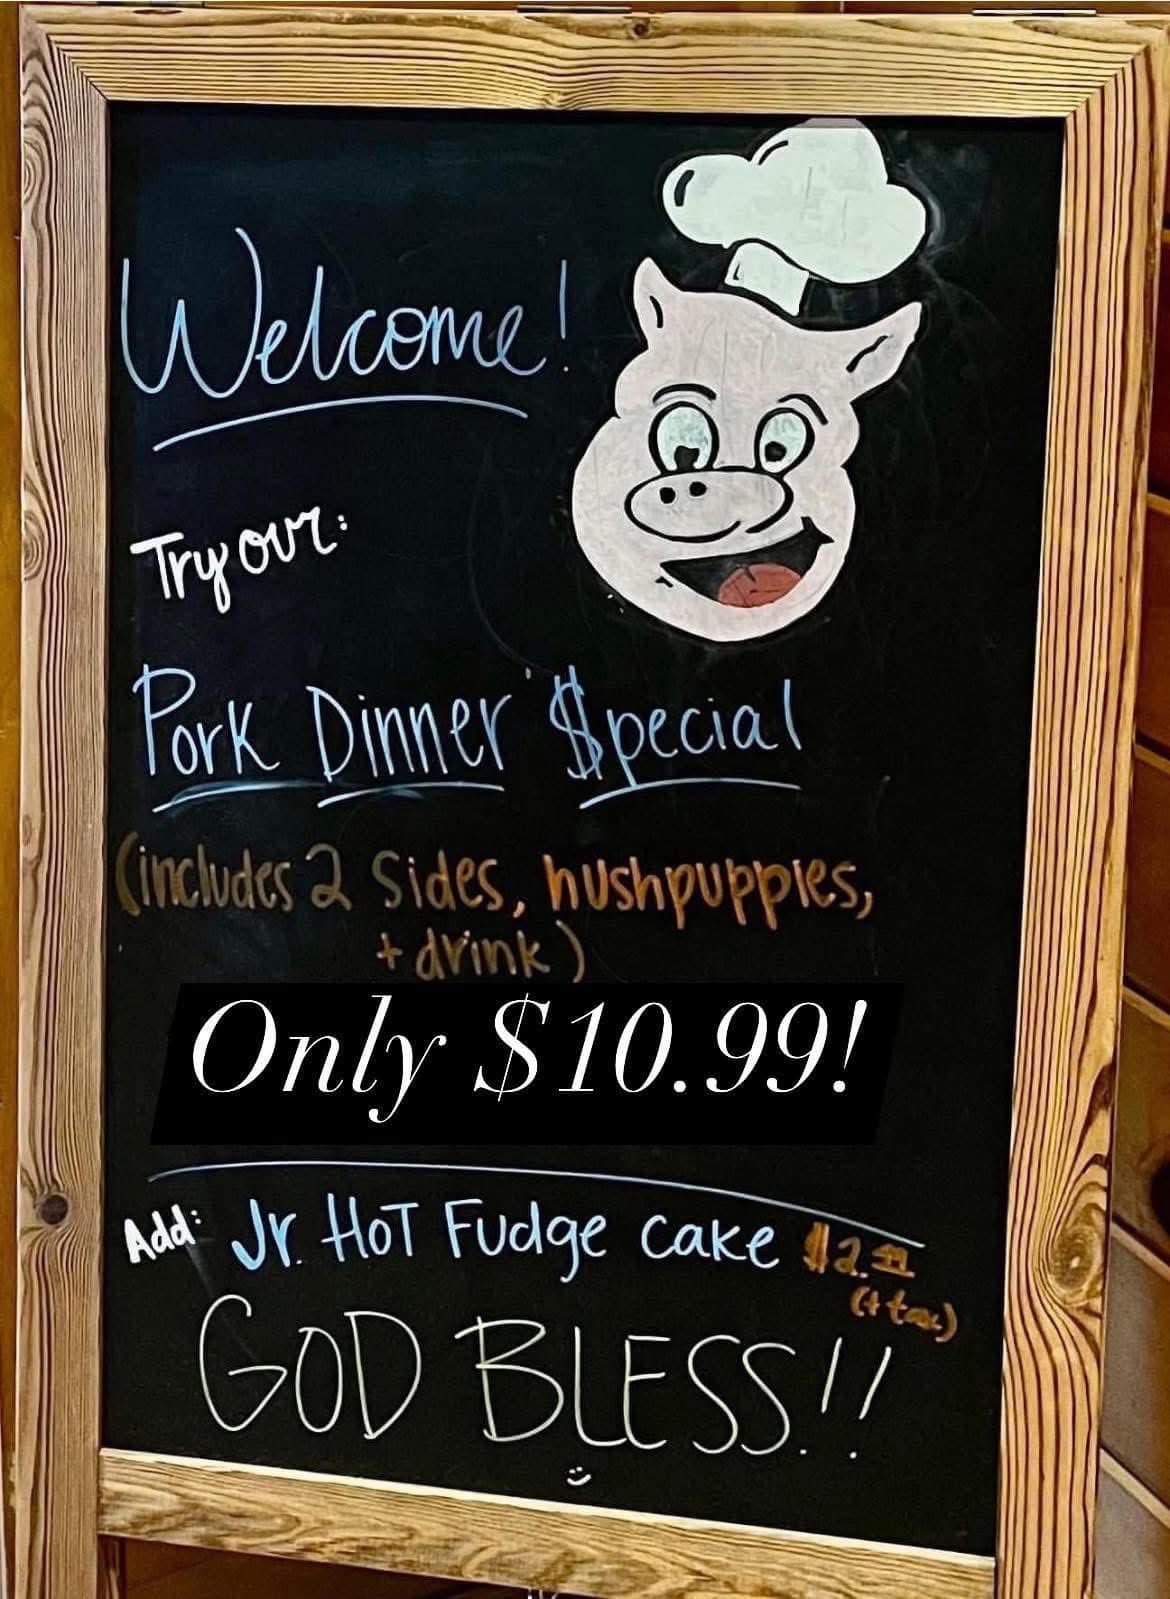 Welcome!
Try our:
Pork Dinner $pecial
(includes 2 sides, hushpuppies,
+ drink)
Only $10.99!
Add: Jr. HoT Fudge cake
(+ tax)
GOD BLESS!!